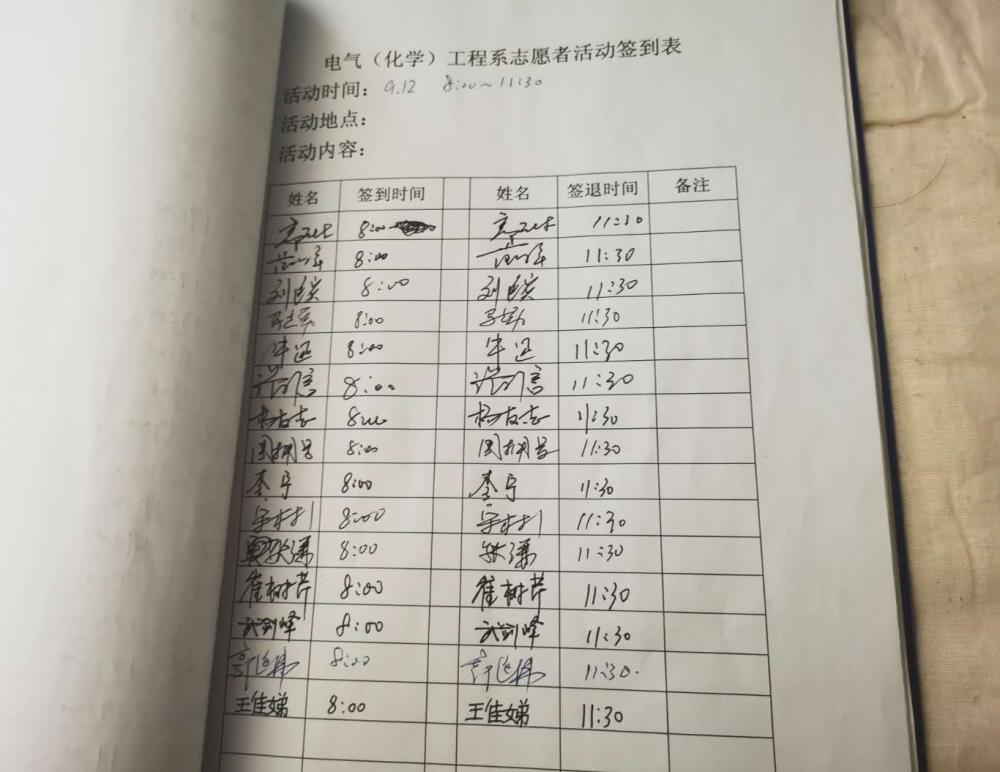 电气（化学）工程系志愿者活动签到表
活动时间：9.12 8:00~11:30
活动地点：
活动内容：
姓名 签到时间 姓名 签退时间 备注
8:00 11:30
8:00 11:30
刘 8:00 刘 11:30
8:00 11:30
牛迅 8:00 牛迅 11:30
8:00 11:30
杨友志 8:00 杨友志 11:30
周 8:00 周 11:30
李宁 8:00 李宁 11:30
8:00 11:30
8:00 11:30
崔树芹 8:00 崔树芹 11:30
武剑峰 8:00 武剑峰 11:30
8:00 11:30.
王佳娣 8:00 王佳娣 11:30